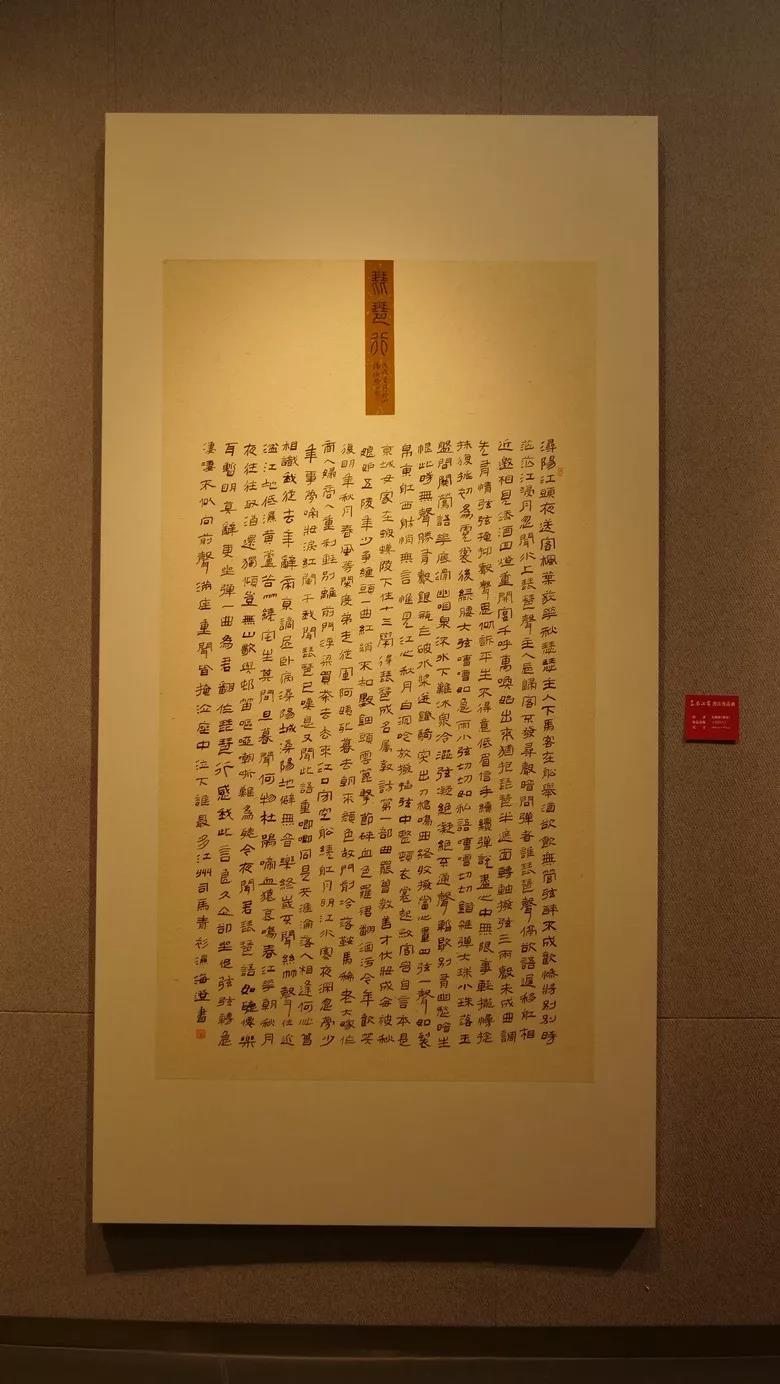 琵琶行
潯陽江頭夜送客楓葉荻華秋瑟瑟主人下馬客在船舉酒欲飲無管弦醉不成歡慘將別別時
茫茫江浸月忽聞水上琵琶聲主人忘歸客不發尋聲暗問彈者誰琵琶聲停欲語遲移船相
近邀相見添酒回燈重開宴千呼萬喚始出來猶抱琵琶半遮面轉軸撥弦三兩聲未成曲調
先有情弦弦掩抑聲聲思似訴平生不得意低眉信手續續彈說盡心中無限事輕攏慢捻
抹復挑初為霓裳後綠腰大弦嘈嘈如急雨小弦切切如私語嘈嘈切切錯雜彈大珠小珠落玉
盤間關鶯語華底滑幽咽泉流水下難冰泉冷澀弦凝絕凝絕不通聲暫歇別有幽愁暗生
恨此時無聲勝有聲銀瓶乍破水漿迸鐵騎突出刀槍鳴曲終收撥當心畫四弦一聲如裂
帛東船西舫悄無言惟見江心秋月白沉吟放撥插弦中整頓衣裳起斂容自言本是
京城女家在蝦蟆陵下住十三學得琵琶成名屬教坊第一部曲罷曾教善才伏妝成每被秋
娘妒五陵年少爭纏頭一曲紅綃不知數鈿頭雲篦擊節碎血色羅裙翻酒污今年歡笑
復明年秋月春風等閑度弟走從軍阿姨死暮去朝來顏色故門前冷落鞍馬稀老大嫁作
商人婦商人重利輕別離前月浮梁買茶去去來江口守空船繞船月明江水寒夜深忽夢少
年事夢啼妝淚紅闌干我聞琵琶已嘆息又聞此語重唧唧同是天涯淪落人相逢何必曾
相識我從去年辭帝京謫居臥病潯陽城潯陽地僻無音樂終歲不聞絲竹聲住近
湓江地低濕黃蘆苦竹繞宅生其間旦暮聞何物杜鵑啼血猿哀鳴春江華朝秋月
夜往往取酒還獨傾豈無山歌與邨笛嘔啞嘲哳難為聽今夜聞君琵琶語如聽僊樂
耳暫明莫辭更坐彈一曲為君翻作琵琶行感我此言良久立卻坐促弦弦轉急
淒淒不似向前聲滿座重聞皆掩泣座中泣下誰最多江州司馬青衫濕海澄書